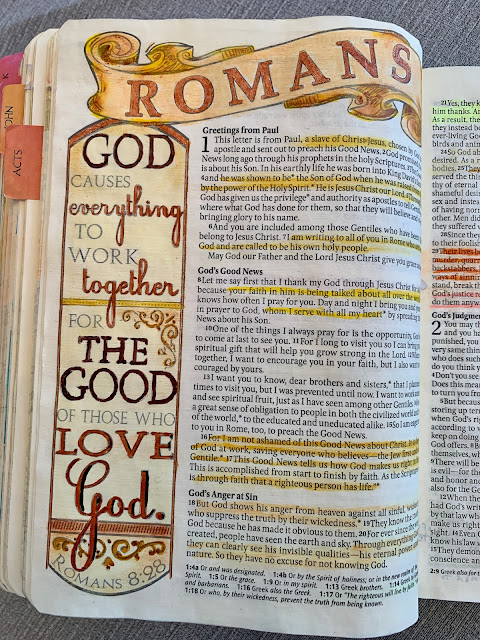 ROMANS
K
JOHN
ACTS
GOD
CAUSES
everything
TO
WORK
together
FOR
THE
GOOD
OF THOSE WHO
LOVE
God.
ROMANS 8:28
Greetings from Paul
1 This letter is from Paul, a slave of Christ Jesus, chosen by God
apostle and sent out to preach his Good News. 2God promised
News long ago through his prophets in the holy Scriptures. 3The
is about his Son. In his earthly life he was born into King David's
4and he was shown to be* the Son of God when he was raised from
by the power of the Holy Spirit.* He is Jesus Christ our Lord. 5Through
God has given us the privilege* and authority as apostles to tell Gentiles
where what God has done for them, so that they will believe and
bringing glory to his name.
6And you are included among those Gentiles who have been
belong to Jesus Christ. 7I am writing to all of you in Rome who are
God and are called to be his own holy people.
May God our Father and the Lord Jesus Christ give you grace
God's Good News
8Let me say first that I thank my God through Jesus Christ for
because your faith in him is being talked about all over the world
knows how often I pray for you. Day and night I bring you and
in prayer to God, whom I serve with all my heart* by spreading
News about his Son.
10One of the things I always pray for is the opportunity, God
to come at last to see you. 11For I long to visit you so I can bring
spiritual gift that will help you grow strong in the Lord. 12When
together, I want to encourage you in your faith, but I also want
couraged by yours.
13I want you to know, dear brothers and sisters,* that I planned
times to visit you, but I was prevented until now. I want to work
and see spiritual fruit, just as I have seen among other Gentiles.
a great sense of obligation to people in both the civilized world and
of the world,* to the educated and uneducated alike. 15So I am eager
to you in Rome, too, to preach the Good News.
16For I am not ashamed of this Good News about Christ.
of God at work, saving everyone who believes—the Jew first and
Gentile.* 17This Good News tells us how God makes us right in
This is accomplished from start to finish by faith. As the Scriptures
is through faith that a righteous person has life."*
God's Anger at Sin
18But God shows his anger from heaven against all sinful, wicked
who suppress the truth by their wickedness.* 19They know the truth
God because he has made it obvious to them. 20For ever since the
created, people have seen the earth and sky. Through everything God
they can clearly see his invisible qualities—his eternal power and
nature. So they have no excuse for not knowing God.
1:4a Or and was designated. 1:4b Or by the Spirit of holiness; or in the new realm of the
Spirit. 1:5 Or the grace. 1:9 Or in my spirit. 1:13 Greek brothers. 1:14 Greek
and barbarians. 1:16 Greek also the Greek. 1:17 Or "The righteous will live by faith."
1:18 Or who, by their wickedness, prevent the truth from being known.
21Yes, they k
him thanks. A
As a result, the
they instead be
ever-living Go
birds and anim
24So God ab
desired. As a r
bodies. 25They
served the thi
thy of eternal
shameful desi
sex and instea
of having nor
other. Men di
they suffered
28Since they
to their foolish
29Their lives b
murder, quarr
backstabbers,
ways of sinni
stand, break th
God's justice r
do them anyw
God's Judgme
2 You may th
and you ha
punished, you
very same thin
who does such
do you think y
4Don't you see
Does this mean
to turn you fro
5But becaus
storing up terr
when God's rig
according to w
keep on doing
God offers. 8B
themselves, wh
There will be
is evil—for the
and honor and
also for the Ge
12When the
had God's writ
by that law wh
make us right
sight. 14Even G
know his law w
15They demon
conscience an
2:9 Greek also for